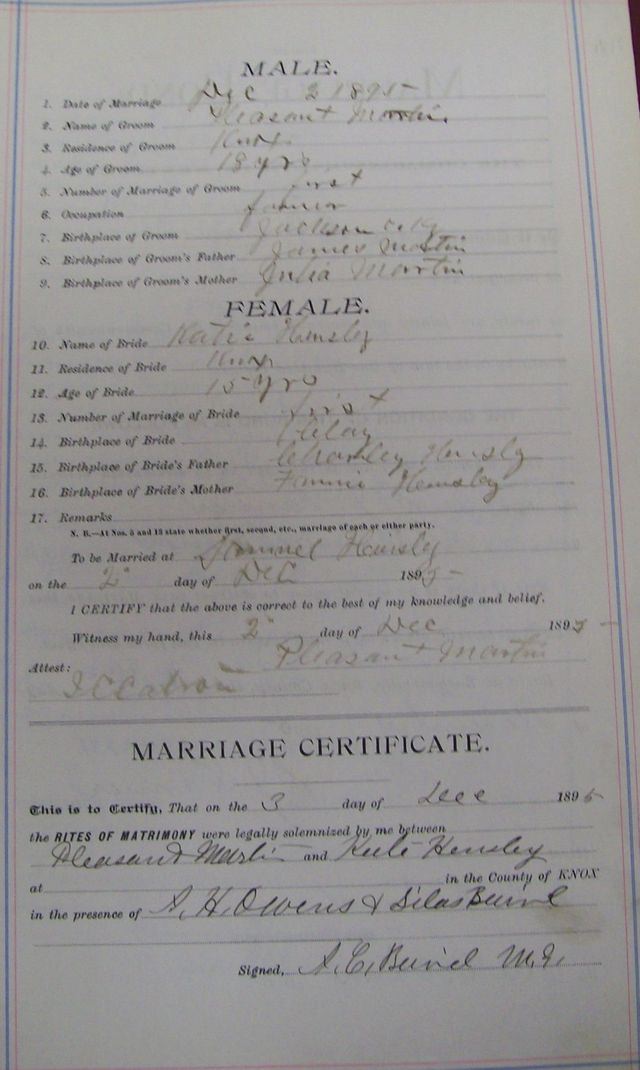 MALE.
1. Date of Marriage Dec 2 1895
2. Name of Groom Pleasant Martin
3. Residence of Groom Knox
4. Age of Groom 18 yrs
5. Number of Marriage of Groom first
6. Occupation farmer
7. Birthplace of Groom Jackson c Ky
8. Birthplace of Groom's Father James Martin
9. Birthplace of Groom's Mother Julia Martin
FEMALE.
10. Name of Bride Katie Hensley
11. Residence of Bride Knox
12. Age of Bride 15 yrs
13. Number of Marriage of Bride first
14. Birthplace of Bride Clay
15. Birthplace of Bride's Father Charley Hensly
16. Birthplace of Bride's Mother Fannie Hemsley
17. Remarks
N. B.—At Nos. 5 and 13 state whether first, second, etc., marriage of each or either party.
To be Married at Hensly
on the 2" day of Dec 1895
I CERTIFY that the above is correct to the best of my knowledge and belief.
Witness my hand, this 2" day of Dec 1895
Pleasant Martin
Attest:
MARRIAGE CERTIFICATE.
This is to Certify, That on the 3 day of Dec 1895
the RITES OF MATRIMONY were legally solemnized by me between
Pleasant Martin and Kate Hensley
at in the County of KNOX
in the presence of A. H. Owens & Silas
Signed, A. C.